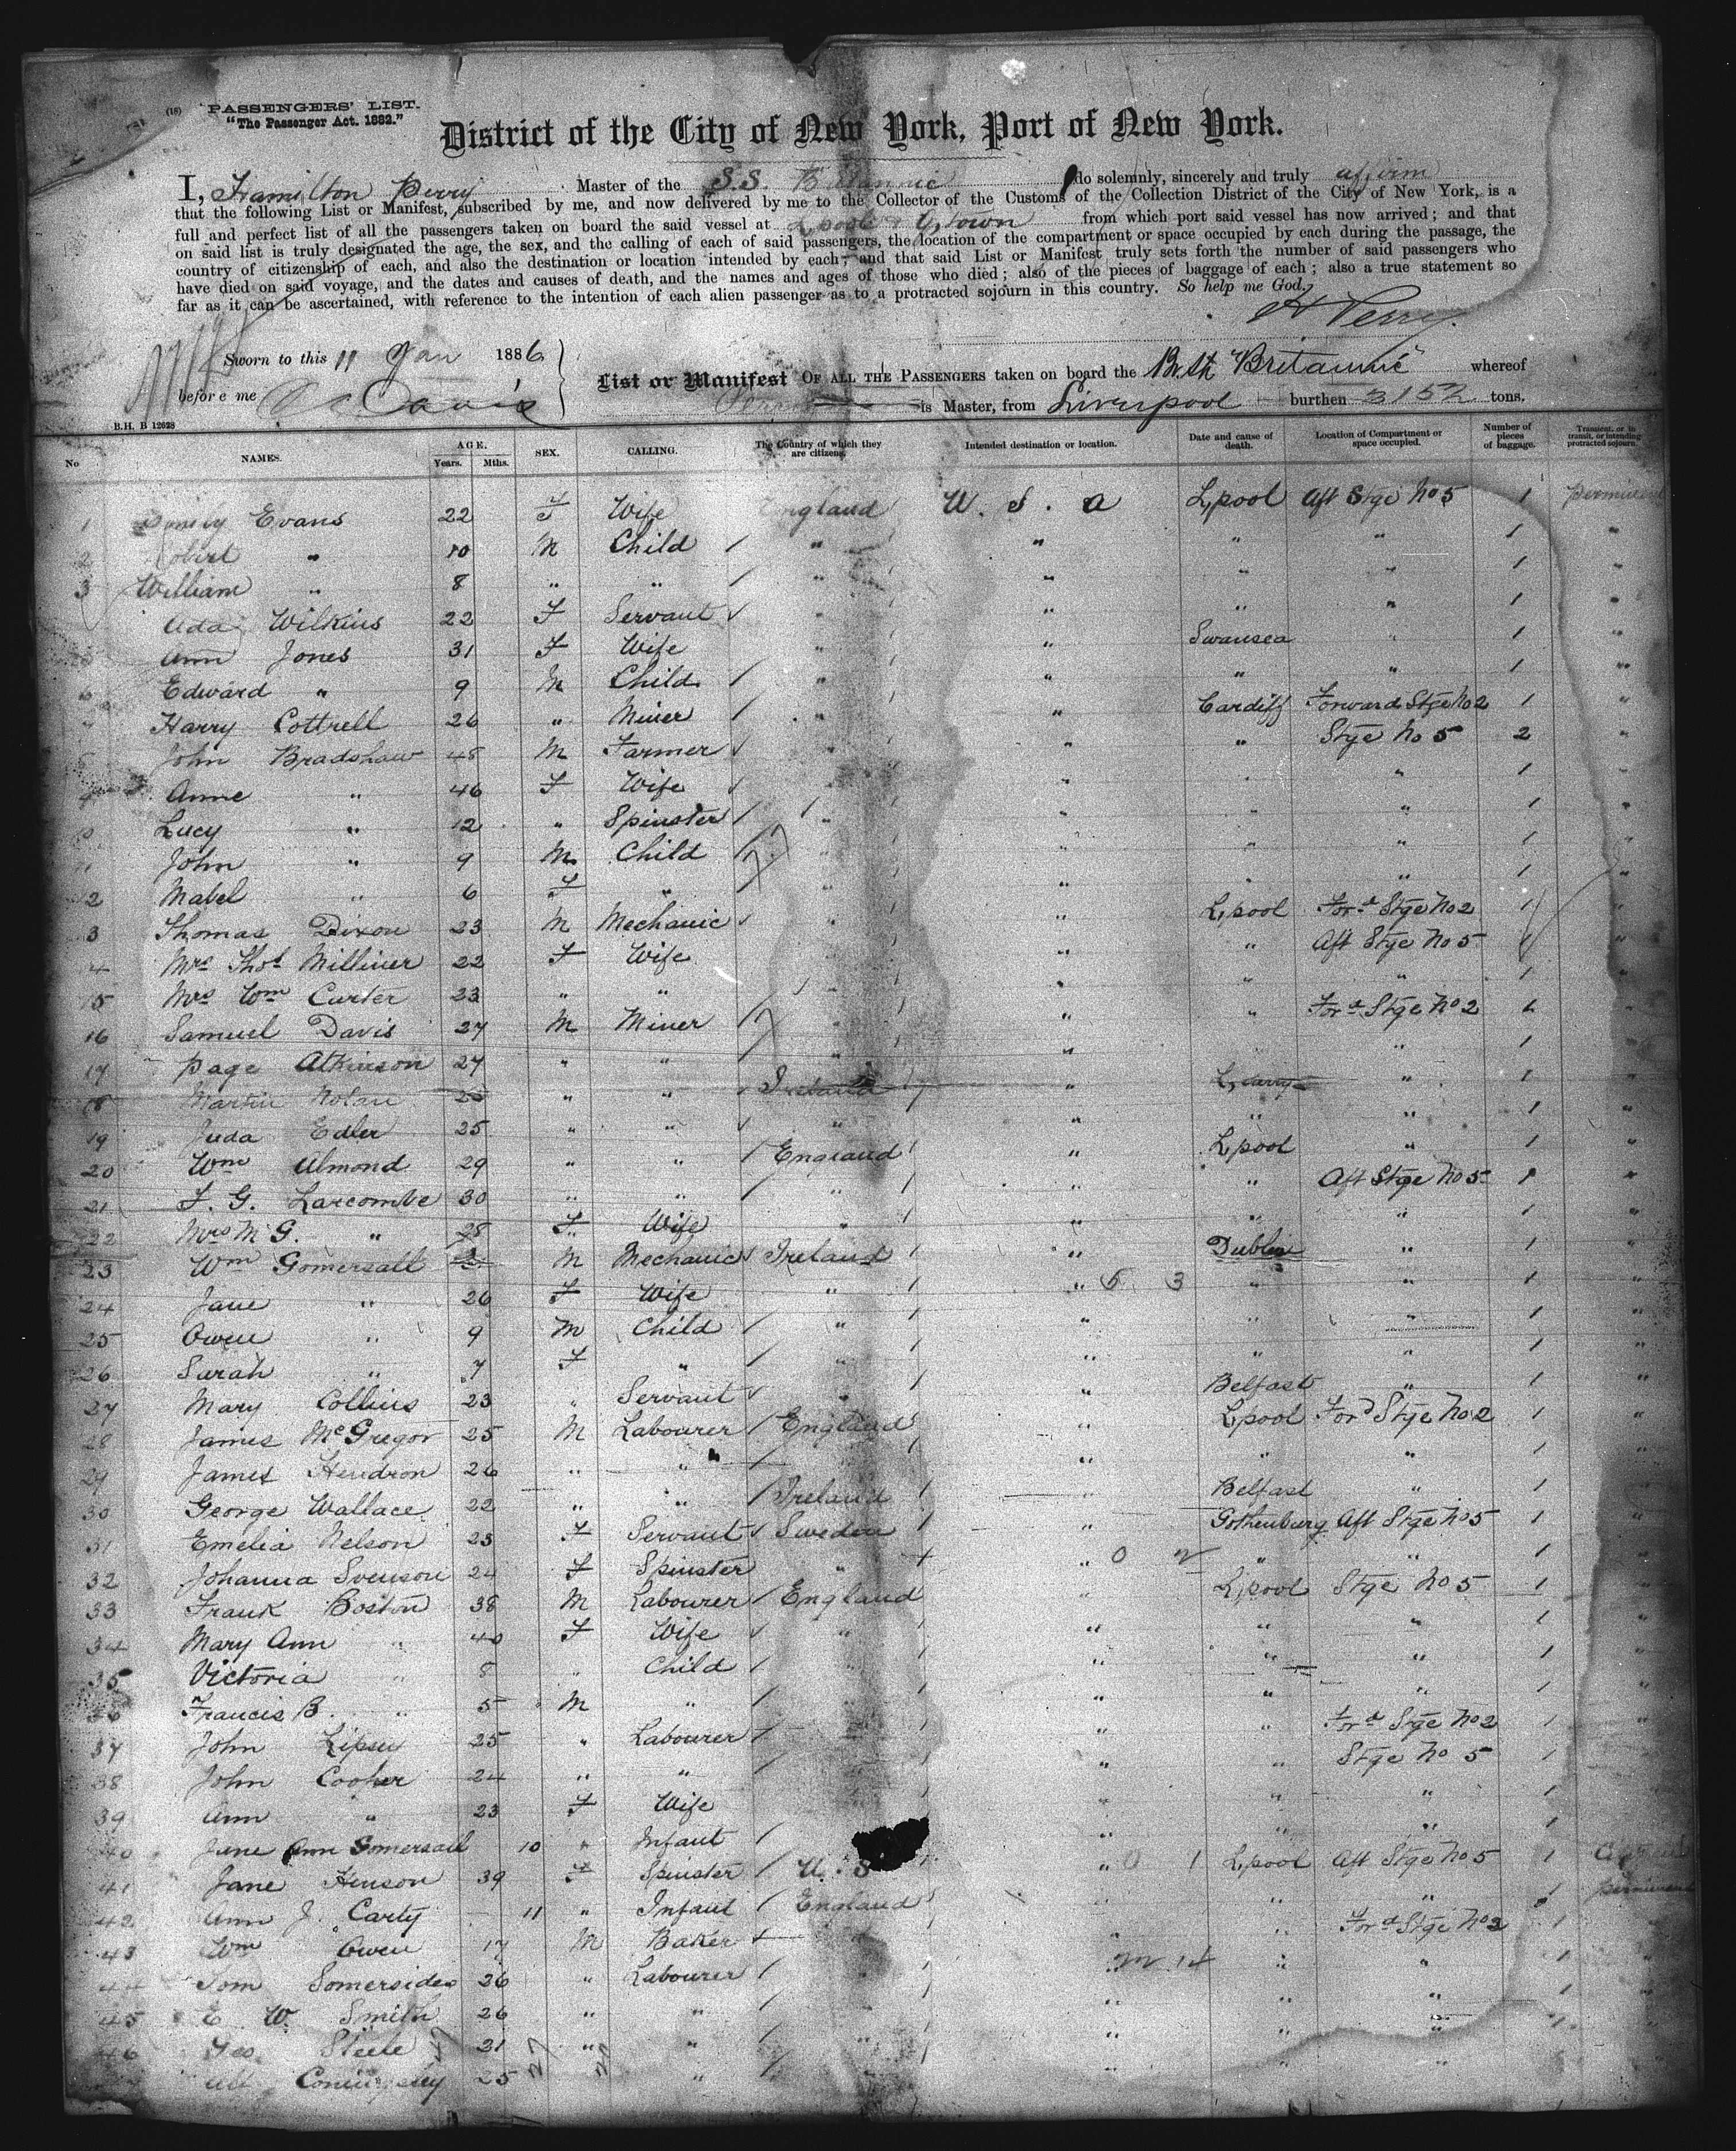 (18) PASSENGERS' LIST.
"The Passenger Act. 1882."
District of the City of New York, Port of New York.
I, Hamilton Perry Master of the S.S. Britannic do solemnly, sincerely and truly affirm
that the following List or Manifest, subscribed by me, and now delivered by me to the Collector of the Customs of the Collection District of the City of New York, is a
full and perfect list of all the passengers taken on board the said vessel at L,pool & Q,town from which port said vessel has now arrived; and that
on said list is truly designated the age, the sex, and the calling of each of said passengers, the location of the compartment or space occupied by each during the passage, the
country of citizenship of each, and also the destination or location intended by each; and that said List or Manifest truly sets forth the number of said passengers who
have died on said voyage, and the dates and causes of death, and the names and ages of those who died; also of the pieces of baggage of each; also a true statement so
far as it can be ascertained, with reference to the intention of each alien passenger as to a protracted sojourn in this country. So help me God.
H Perry.
Sworn to this 11 Jan 1886
before me Davis
List or Manifest OF ALL THE PASSENGERS taken on board the Br. Sh "Britannic" whereof
is Master, from Liverpool burthen 3152 tons.
B.H. B 12628
No NAMES. AGE. Years. Mths. SEX. CALLING. The Country of which they are citizens. Intended destination or location. Date and cause of death. Location of Compartment or space occupied. Number of pieces of baggage. Transient, or in transit, or intending protracted sojourn.
1 Evans 22 F Wife England U. S. A L,pool Aft Stge No 5 1
2 Robert " 10 M Child / " " " " 1 "
3 William " 8 " " / " " " " 1 "
Ada Wilkins 22 F Servant " " " " 1 "
Ann Jones 31 F Wife " " Swansea " 1 "
Edward " 9 M Child / " " " " 1 "
Harry Cottrell 26 " Miner / " " Cardiff Forward Stge No 2 1 "
John Bradshaw 48 M Farmer " " " Stge No 5 2 "
Anne " 46 F Wife " " " " 1 "
Lucy " 12 " Spinster / " " " " 1 "
11 John " 9 M Child " " " " 1 "
2 Mabel " 6 F " " " " " 1 "
3 Thomas Dixon 23 M Mechanic " " L,pool For'd Stge No 2 1 "
4 Mrs Thos Milliner 22 F Wife " " " Aft Stge No 5 1 "
15 Mrs Wm Carter 23 " " " " " " 1 "
16 Samuel Davis 27 M Miner / " " " For'd Stge No 2 "
17 Page Atkinson 27 " " / " " " " 1 "
18 Martin Nolan 25 " " Ireland " L,derry " 1 "
19 Juda Edler 25 " " " " " " 1 "
20 Wm Almond 29 " " / England " L,pool " 1 "
21 F. G. Larcombe 30 " " / " " " Aft Stge No 5 1 "
22 Mrs M G. " 28 F Wife " " " " 1 "
23 Wm Gomersall M Mechanic Ireland " Dublin " 1 "
24 Jane " 26 F Wife " " 5 3 " " 1 "
25 Owen " 9 M Child / " " " " 1 "
26 Sarah " 7 F " / " " " " 1 "
27 Mary Collins 23 " Servant " " Belfast " 1 "
28 James McGregor 25 M Labourer / England " L,pool For'd Stge No 2 1 "
29 James Hendron 26 " " / " " " " 1 "
30 George Wallace 22 " " / Ireland " Belfast " 1 "
31 Emelia Nelson 23 F Servant Sweden " Gothenburg Aft Stge No 5 1 "
32 Johanna Svenson 24 F Spinster " " 0 " " 1 "
33 Frank Boston 38 M Labourer / England " L,pool Stge No 5 1 "
34 Mary Ann " 40 F Wife " " " " 1 "
35 Victoria " 8 " Child / " " " " 1 "
36 Francis B. " 5 M " / " " " " 1 "
37 John 25 " Labourer / " " " For'd Stge No 2 1 "
38 John Cooher 24 " " " " " Stge No 5 1 "
39 Ann " 23 F Wife " " " " 1 "
40 Jane Ann Gomersall 10 " Infant / " " " 1
41 Jane Henson 39 F Spinster / U. S " 0 1 L,pool Aft Stge No 5 1
42 Ann J. Carty 11 " Infant / England " " " 1
43 Wm Owen 17 M Baker " " " For'd Stge No 2 1
44 Tom Somersides 26 " Labourer / " " " 1 "
45 E W. Smith 26 " " / " " " " 1
46 Geo. Steele 21 " " / " " " " 1
25 " / " " "